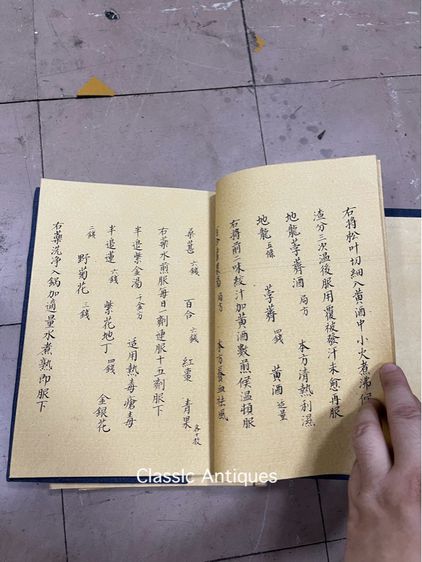 右将松叶切細入黄酒中小火煮沸候
渣分三次温後服用覆被發汁未愈再服
地龍荸薺酒 局方 本方清热利濕
地龍 五條 荸薺 四錢 黄酒 适量
右将前二味紋汁加黄酒数煎候温頓服
局方 本方養血祛風
桑葚 六錢 百合 六錢 紅棗 青果 各十枚
右藥水煎服每日一劑連服十五劑服下
半邊紫金湯 千金方 适用热毒瘡毒
半邊蓮 六錢 紫花地丁 四錢 金銀花
三錢 野菊花 三錢
右藥洗净入鍋加適量水煮熟即服下
Classic Antiques